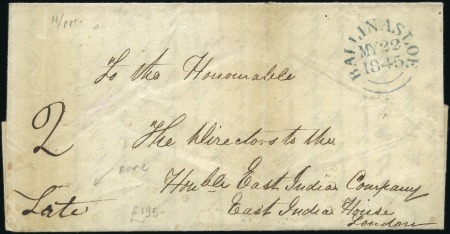 BALLINASLOE
MY 22
1845
To the Honourable
2
The Directors to the
rare
Honble East India Company
Late
£195-
East India House
London